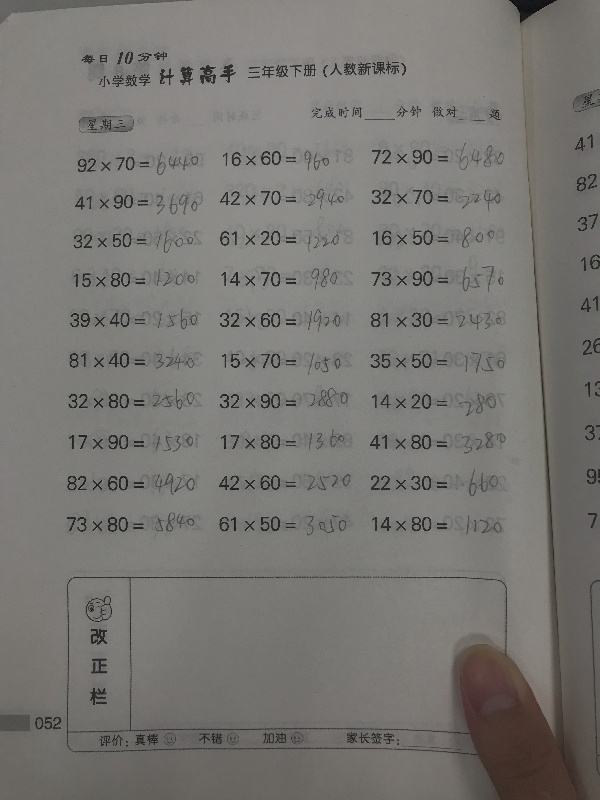 每日10分钟
小学数学 计算高手 三年级下册(人教新课标)
完成时间____分钟 做对____题
星期三
92×70=6440 16×60=960 72×90=6480
41×90=3690 42×70=2940 32×70=2240
32×50=1600 61×20=1220 16×50=800
15×80=1200 14×70=980 73×90=6570
39×40=1560 32×60=1920 81×30=2430
81×40=3240 15×70=1050 35×50=1750
32×80=2560 32×90=2880 14×20=280
17×90=1530 17×80=1360 41×80=3280
82×60=4920 42×60=2520 22×30=660
73×80=5840 61×50=3050 14×80=1120
改正栏
052
评价:真棒 不错 加油 家长签字:
41
82
37
16
41
26
13
37
95
7